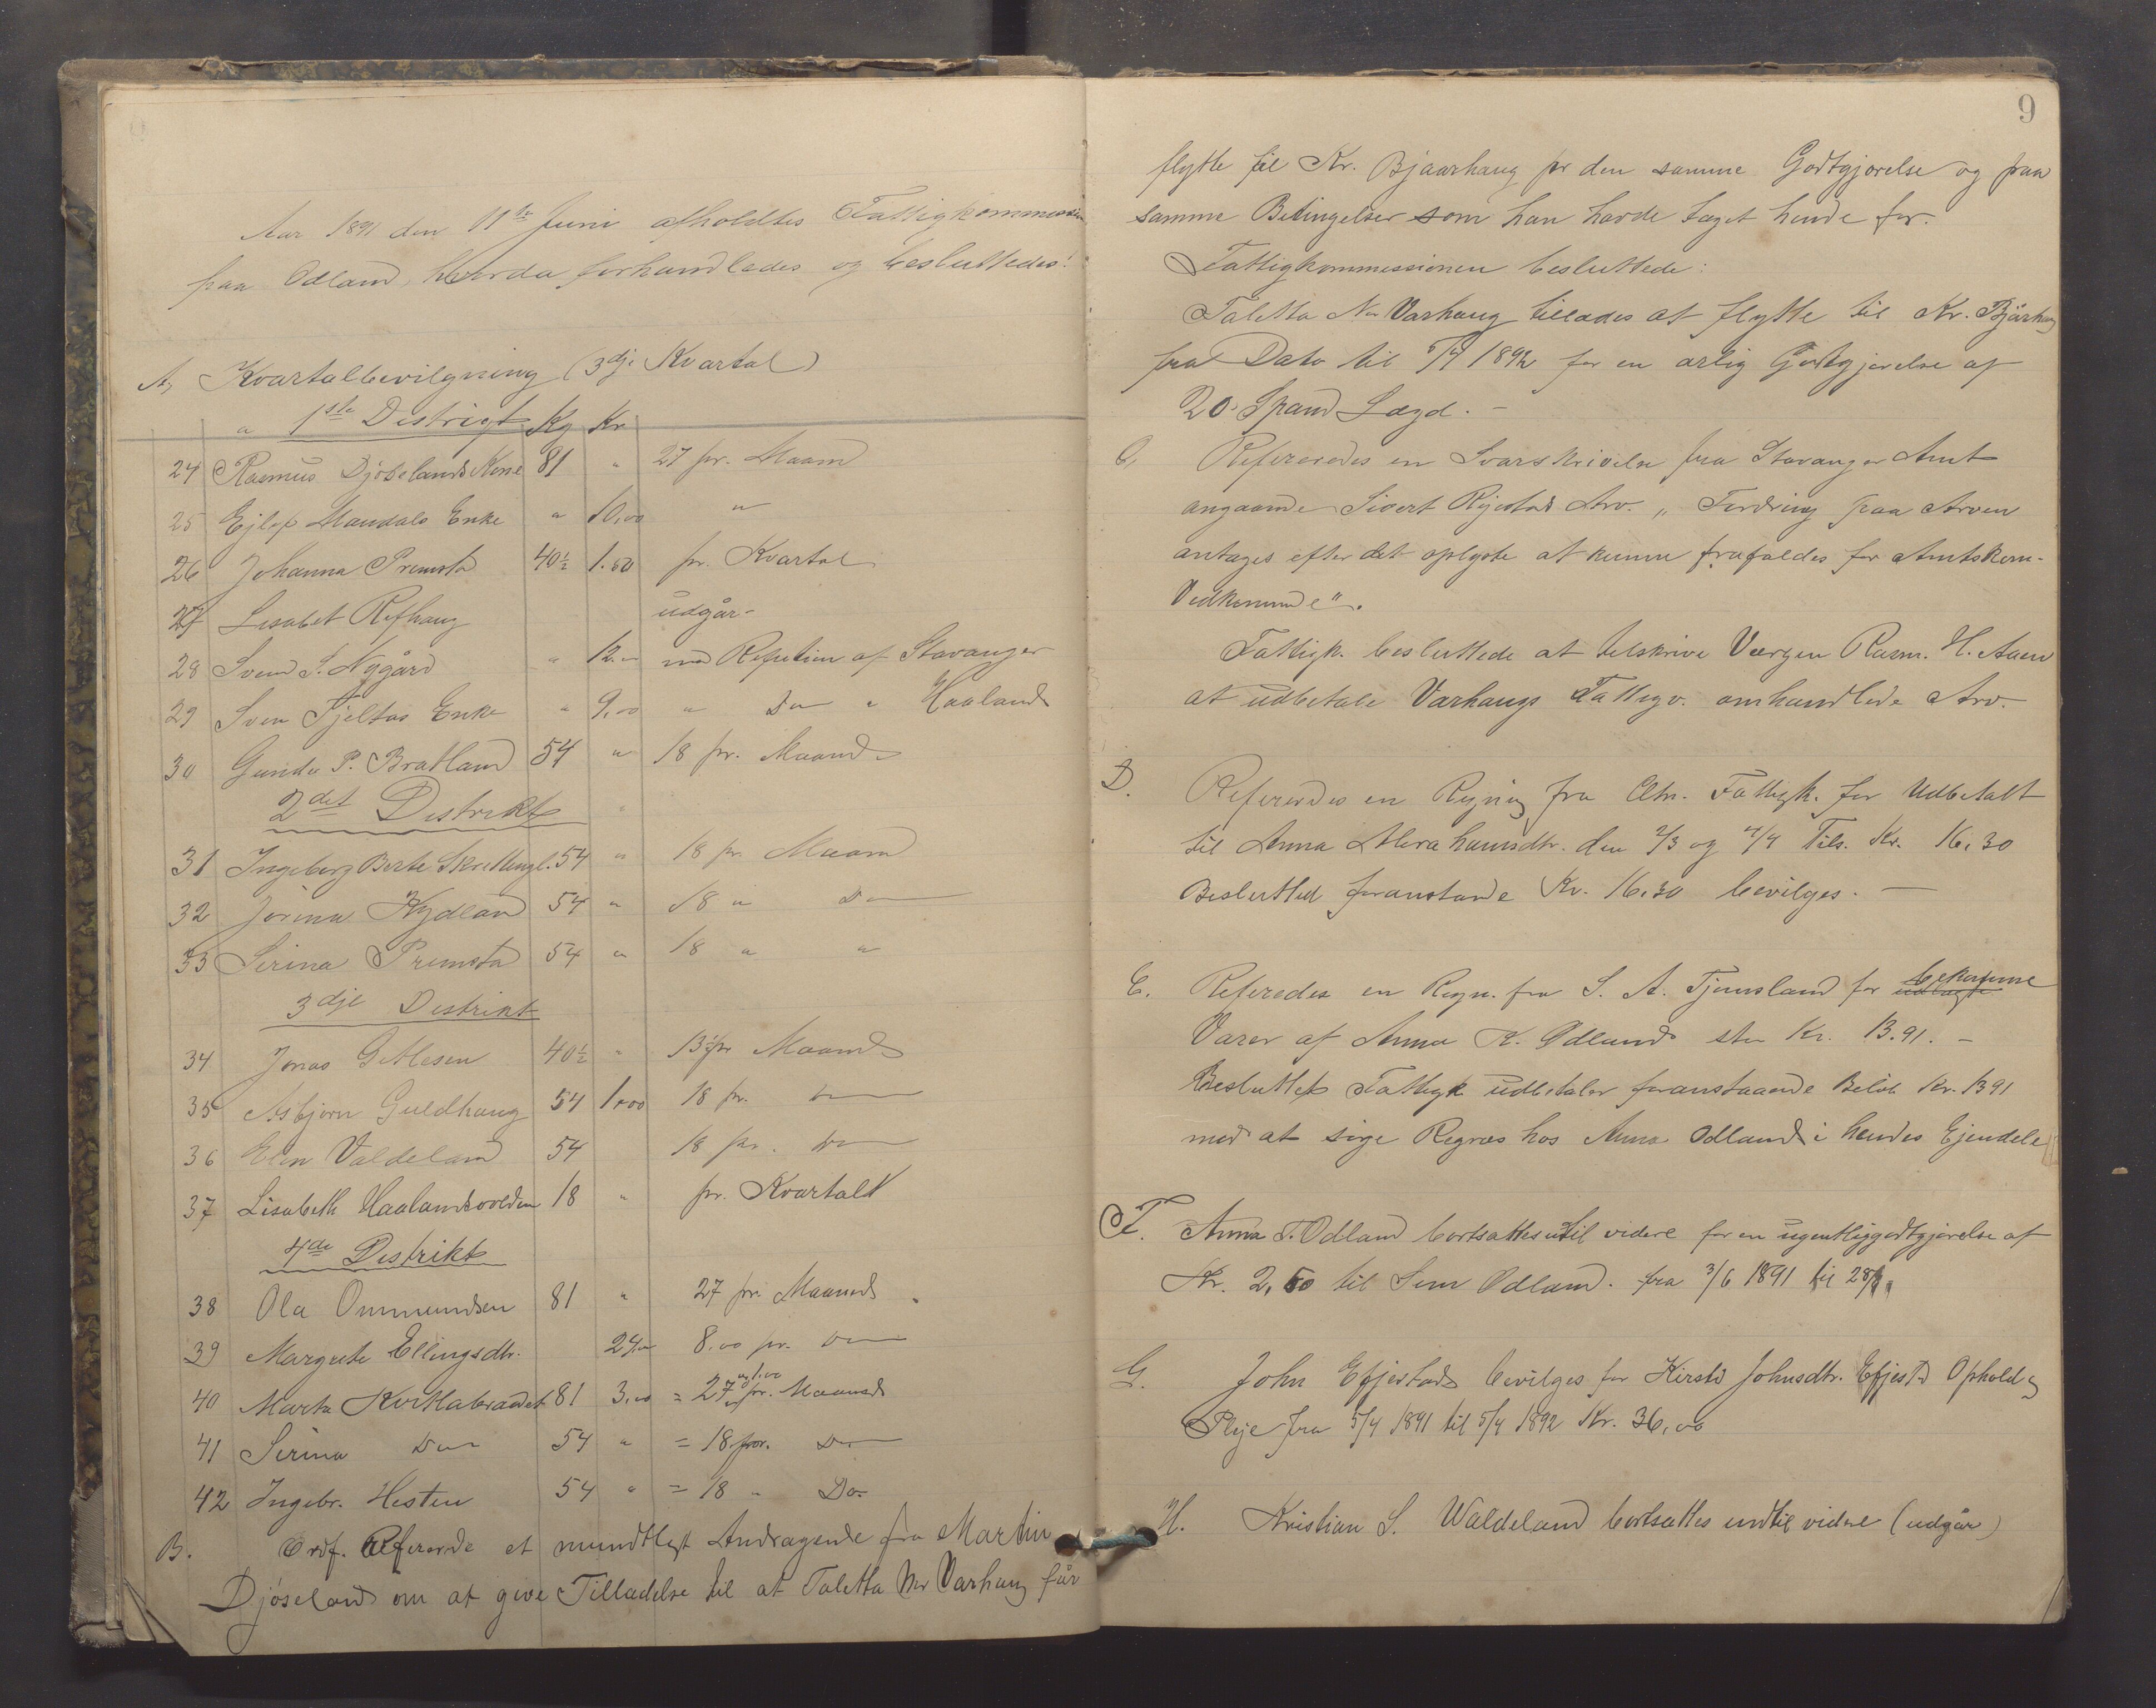 Aar 1891 den 11te Juni afholdtes Fattigkommission
paa Odland, hvorda forhandledes og besluttedes:
A, Kvartalbevilgning (3dje Kvartal)
1ste Distrigt Kg Kr
24 Rasmus Djøselands Kone 81 " 27 pr. Maand
25 Ejlef Mandals Enke " 10,00 "
26 Johanna Premsta 40½ 1.50 pr. Kvartal
27 Lisabet Refhaug udgår-
28 Svend S. Nygård " 12.00 med Refution af Stavanger
29 Sven Fjeltas Enke " 9,00 " Do " Haaland
30 Gunder P. Bratland 54 " 18 pr. Maand
2det Distrikt
31 Ingeborg Berte Skretting. 54 " 18 pr. Maand
32 Jorina Kydland 54 " 18 " Do
33 Serina Premsta 54 " 18 " "
3dje Distrikt
34 Jonas Getlesen 40½ " 13½ pr Maand
35 Asbjørn Guldhaug 54 1.00 18 pr. Do
36 Elen Valdeland 54 18 pr. Do
37 Lisabeth Haalandsvolden 18 " pr. Kvartalt
4de Distrikt
38 Ola Ommundsen 81 " 27 pr. Maaned
39 Margrete Ellingsdtr. 24.00 8.00 pr. Do
40 Marta Kvitlabrædet 81 3.00 = 27 og 1.00 pr. Maaned
41 Serina Do 54 " = 18 pr. Do
42 Ingebr. Hesten 54 " = 18 " Do.
B. Ordf. Refererde et mundtligt Andragende fra Martin
Djøseland om at give Tilladelse til at Taletta Nr Varhaug får
9
flytte til Kr. Bjaarhaug for den samme Godtgjørelse og paa
samme Betingelser som han havde taget hende for.
Fattigkommissionen besluttede:
Taletta N. Varhaug tillades at flytte til Kr. Bjårhaug
fra Dato til 5/4 1892 for en årlig Godtgjørelse af
20 Spand Lægd. -
C, Refereredes en Svarskrivelse fra Stavanger Amt
angaaende Sivert Rijestad Arv. „ Fordring paa Arven
antages efter det oplyste at kunne frafaldes for Amtskom-
Vedkommende".
Fattigk. besluttede at tilskrive Værgen Rasm. H. Aaen
at udbetale Varhaugs Fattigv. omhandlede Arv.
D. Refereredes en Regning fra Fattigk. for Udbetalt
til Anna Abrahamsdtr. den 2/3 og 4/4 Tils. Kr. 16,30
Besluttet foranstande Kr. 16.30 bevilges. -
E. Referedes en Regn. fra S. A. Tjemsland for udlagte bekomne
Varer af Anna K. Ødland stor Kr. 13.91. -
Besluttet Fattigk udbetaler foranstaaende Beløb Kr. 1391
med at søge Regres hos Anna Odland i hendes Ejendele
F. Anna T. Odland bortsattes indtil videre for en ugentliggodtgjørelse af
Kr. 2,50 til Sem Odland. fra 3/6 1891 til
G. John Efjestad bevilges for Kirsti Johnsdtr. Efjestd Ophold og
Pleje fra 5/4 1891 til 5/4 1892 Kr. 36,00
H. Kristian S. Waldeland bortsattes indtil videre (udgår)